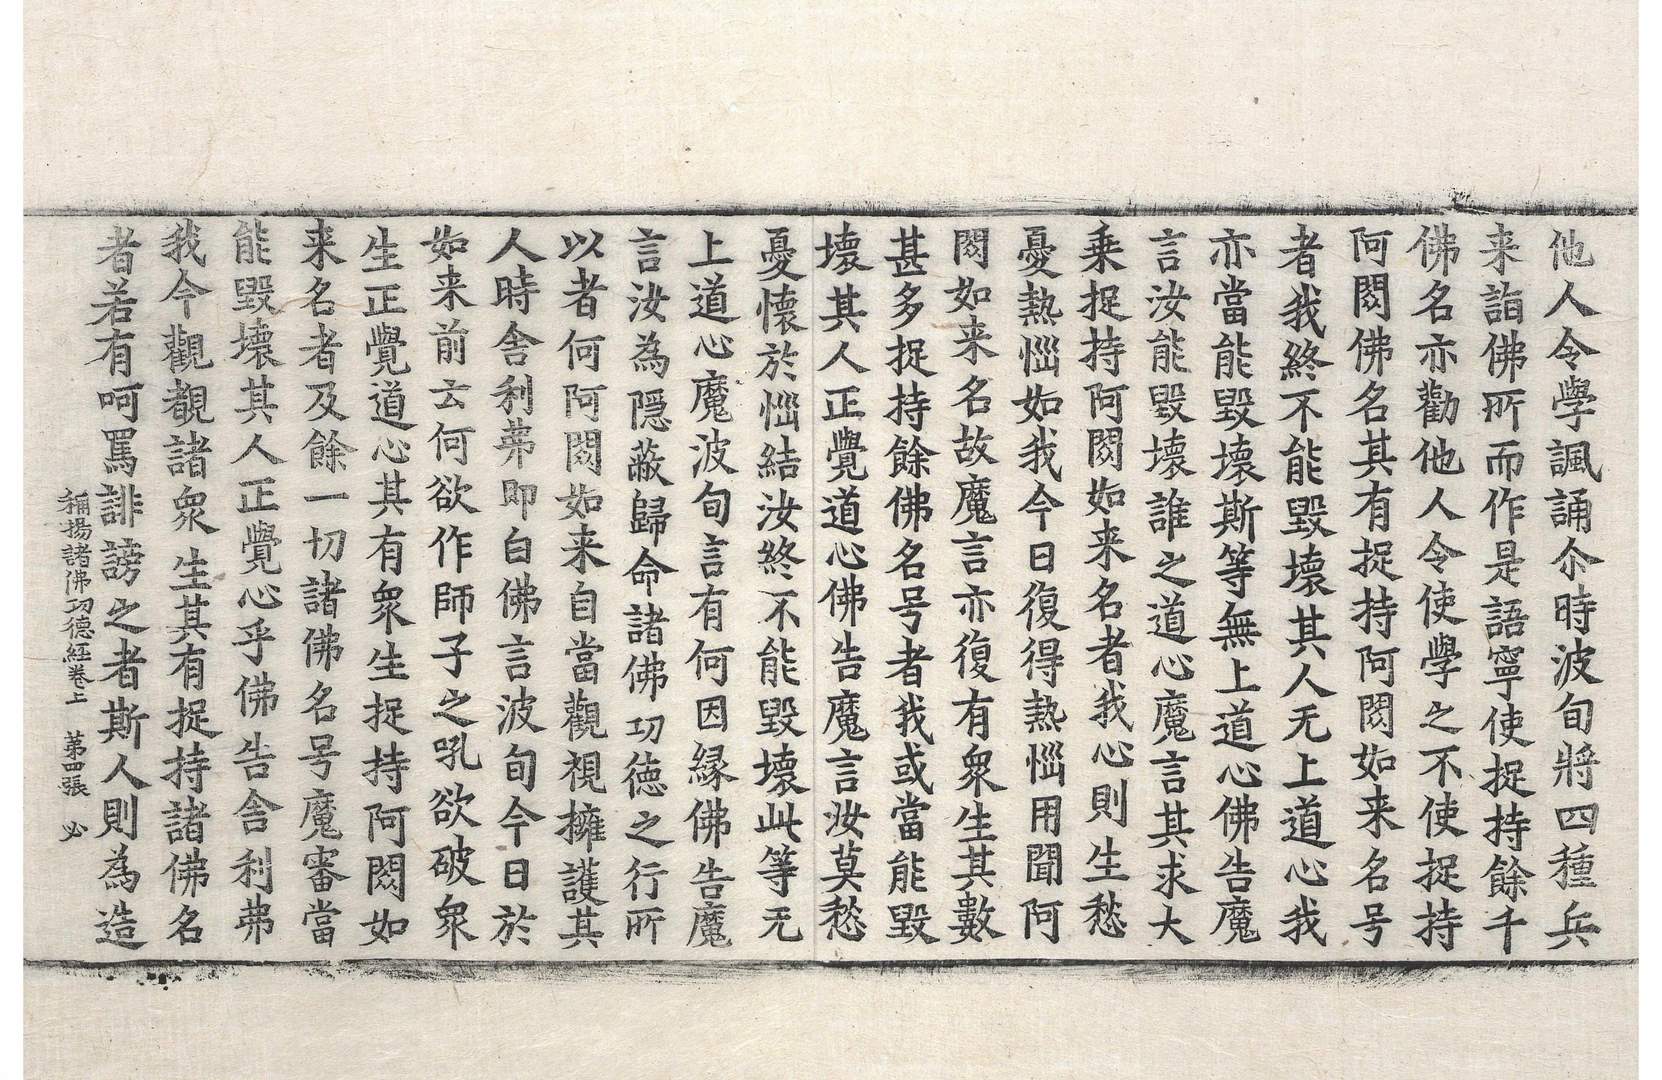 他人令學諷誦尒時波旬將四種兵
来詣佛所而作是語寧使捉持餘千
佛名亦勸他人令使學之不使捉持
阿閦佛名其有捉持阿閦如来名号
者我終不能毀壞其人无上道心我
亦當能毀壞斯等無上道心佛告魔
言汝能毀壞誰之道心魔言其求大
乗捉持阿閦如来名者我心則生愁
憂熱惱如我今日復得熱惱用聞阿
閦如来名故魔言亦復有衆生其數
甚多捉持餘佛名号者我或當能毀
壞其人正覺道心佛告魔言汝莫愁
憂懷於惱結汝終不能毀壞此等无
上道心魔波旬言有何因緣佛告魔
言汝為隱蔽歸命諸佛功德之行所
以者何阿閦如来自當觀視擁護其
人時舍利弗即白佛言波旬今日於
如来前云何欲作師子之吼欲破衆
生正覺道心其有衆生捉持阿閦如
来名者及餘一切諸佛名号魔審當
能毀壞其人正覺心乎佛告舍利弗
我今觀覩諸衆生其有捉持諸佛名
者若有呵罵誹謗之者斯人則為造
稱揚諸佛功德經卷上　第四張　必